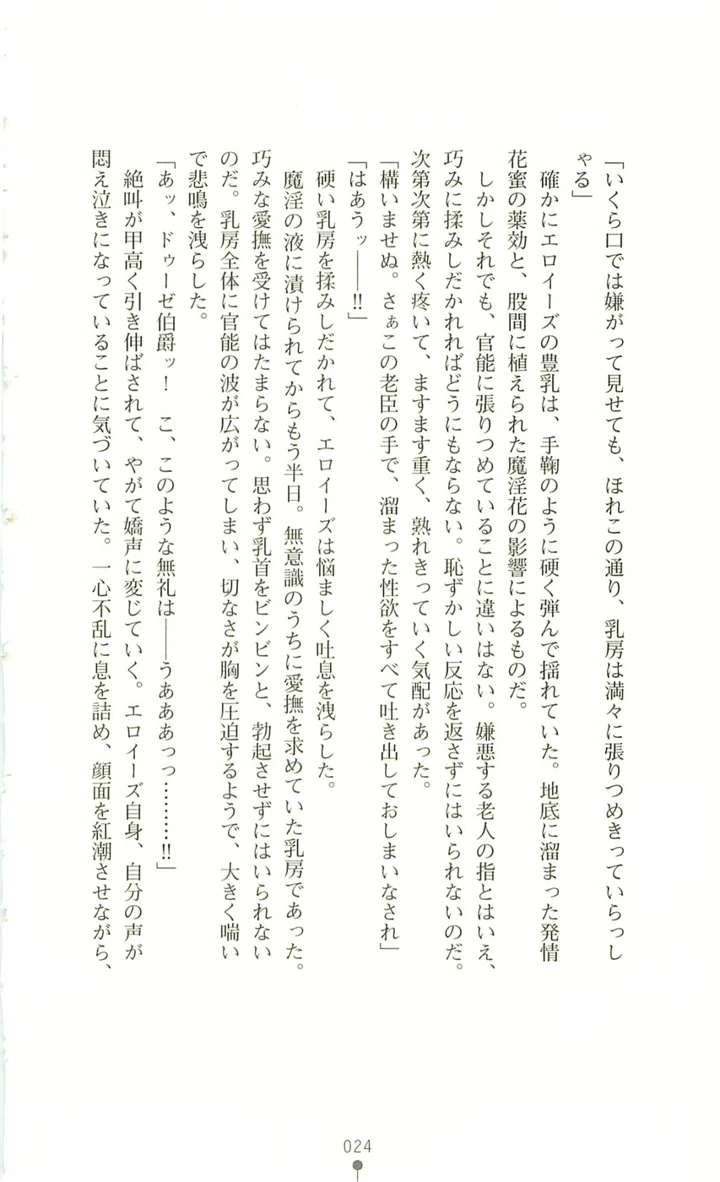 「いくら口では嫌がって見せても、ほれこの通り、乳房は満々に張りつめきっていらっし
ゃる」
確かにエロイーズの豊乳は、手鞠のように硬く弾んで揺れていた。地底に溜まった発情
花蜜の薬効と、股間に植えられた魔淫花の影響によるものだ。
しかしそれでも、官能に張りつめていることに違いはない。嫌悪する老人の指とはいえ、
巧みに揉みしだかれればどうにもならない。恥ずかしい反応を返さずにはいられないのだ。
次第次第に熱く疼いて、ますます重く、熟れきっていく気配があった。
「構いませぬ。さぁこの老臣の手で、溜まった性欲をすべて吐き出しておしまいなされ」
「はあうッ――!!」
硬い乳房を揉みしだかれて、エロイーズは悩ましく吐息を洩らした。
魔淫の液に漬けられてからもう半日。無意識のうちに愛撫を求めていた乳房であった。
巧みな愛撫を受けてはたまらない。思わず乳首をビンビンと、勃起させずにはいられない
のだ。乳房全体に官能の波が広がってしまい、切なさが胸を圧迫するようで、大きく喘い
で悲鳴を洩らした。
「あッ、ドゥーゼ伯爵ッ！　こ、このような無礼は――うあああっっ………!!」
絶叫が甲高く引き伸ばされて、やがて嬌声に変じていく。エロイーズ自身、自分の声が
悶え泣きになっていることに気づいていた。一心不乱に息を詰め、顔面を紅潮させながら、
024